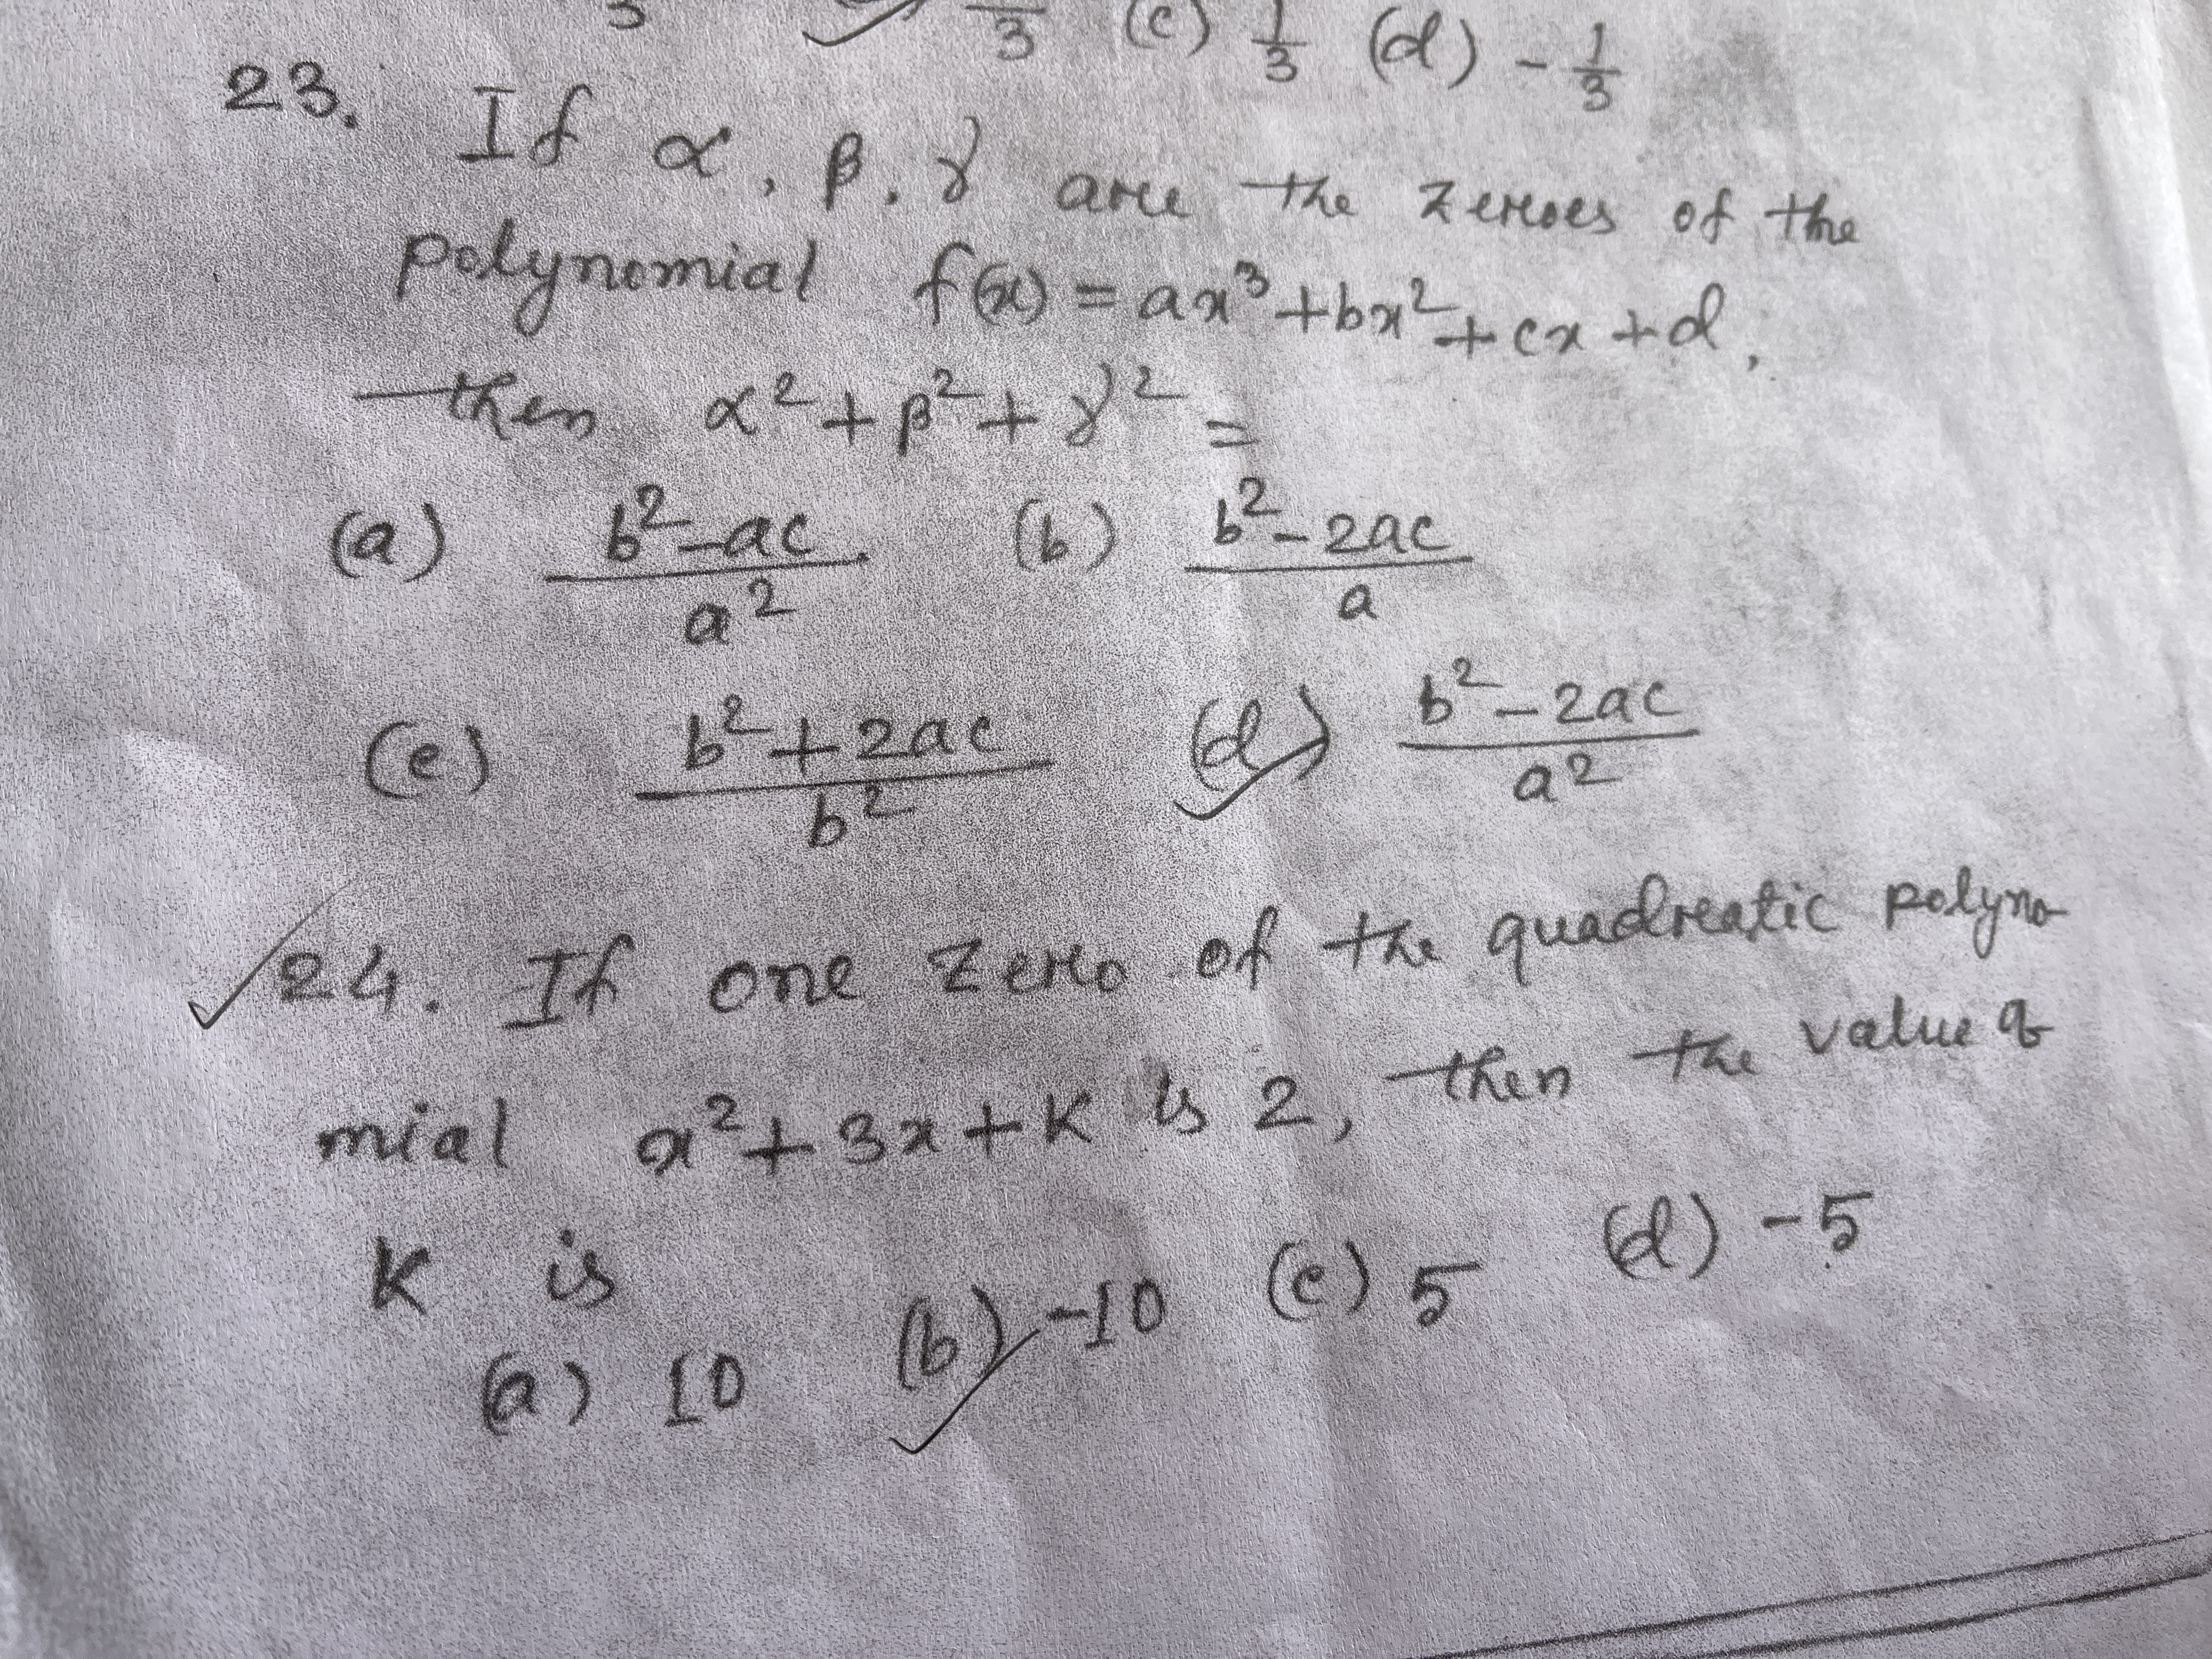 3 (c) 1/3 (d) - 1/3
23. If α, β, γ are the zeroes of the
polynomial f(x) = ax³ + bx² + cx + d,
then α² + β² + γ² =
(a) b² - ac / a² (b) b² - 2ac / a
(c) b² + 2ac / b² (d) b² - 2ac / a²
24. If one zero of the quadratic polyno-
mial x² + 3x + K is 2, then the value of
K is
(a) 10 (b) -10 (c) 5 (d) -5